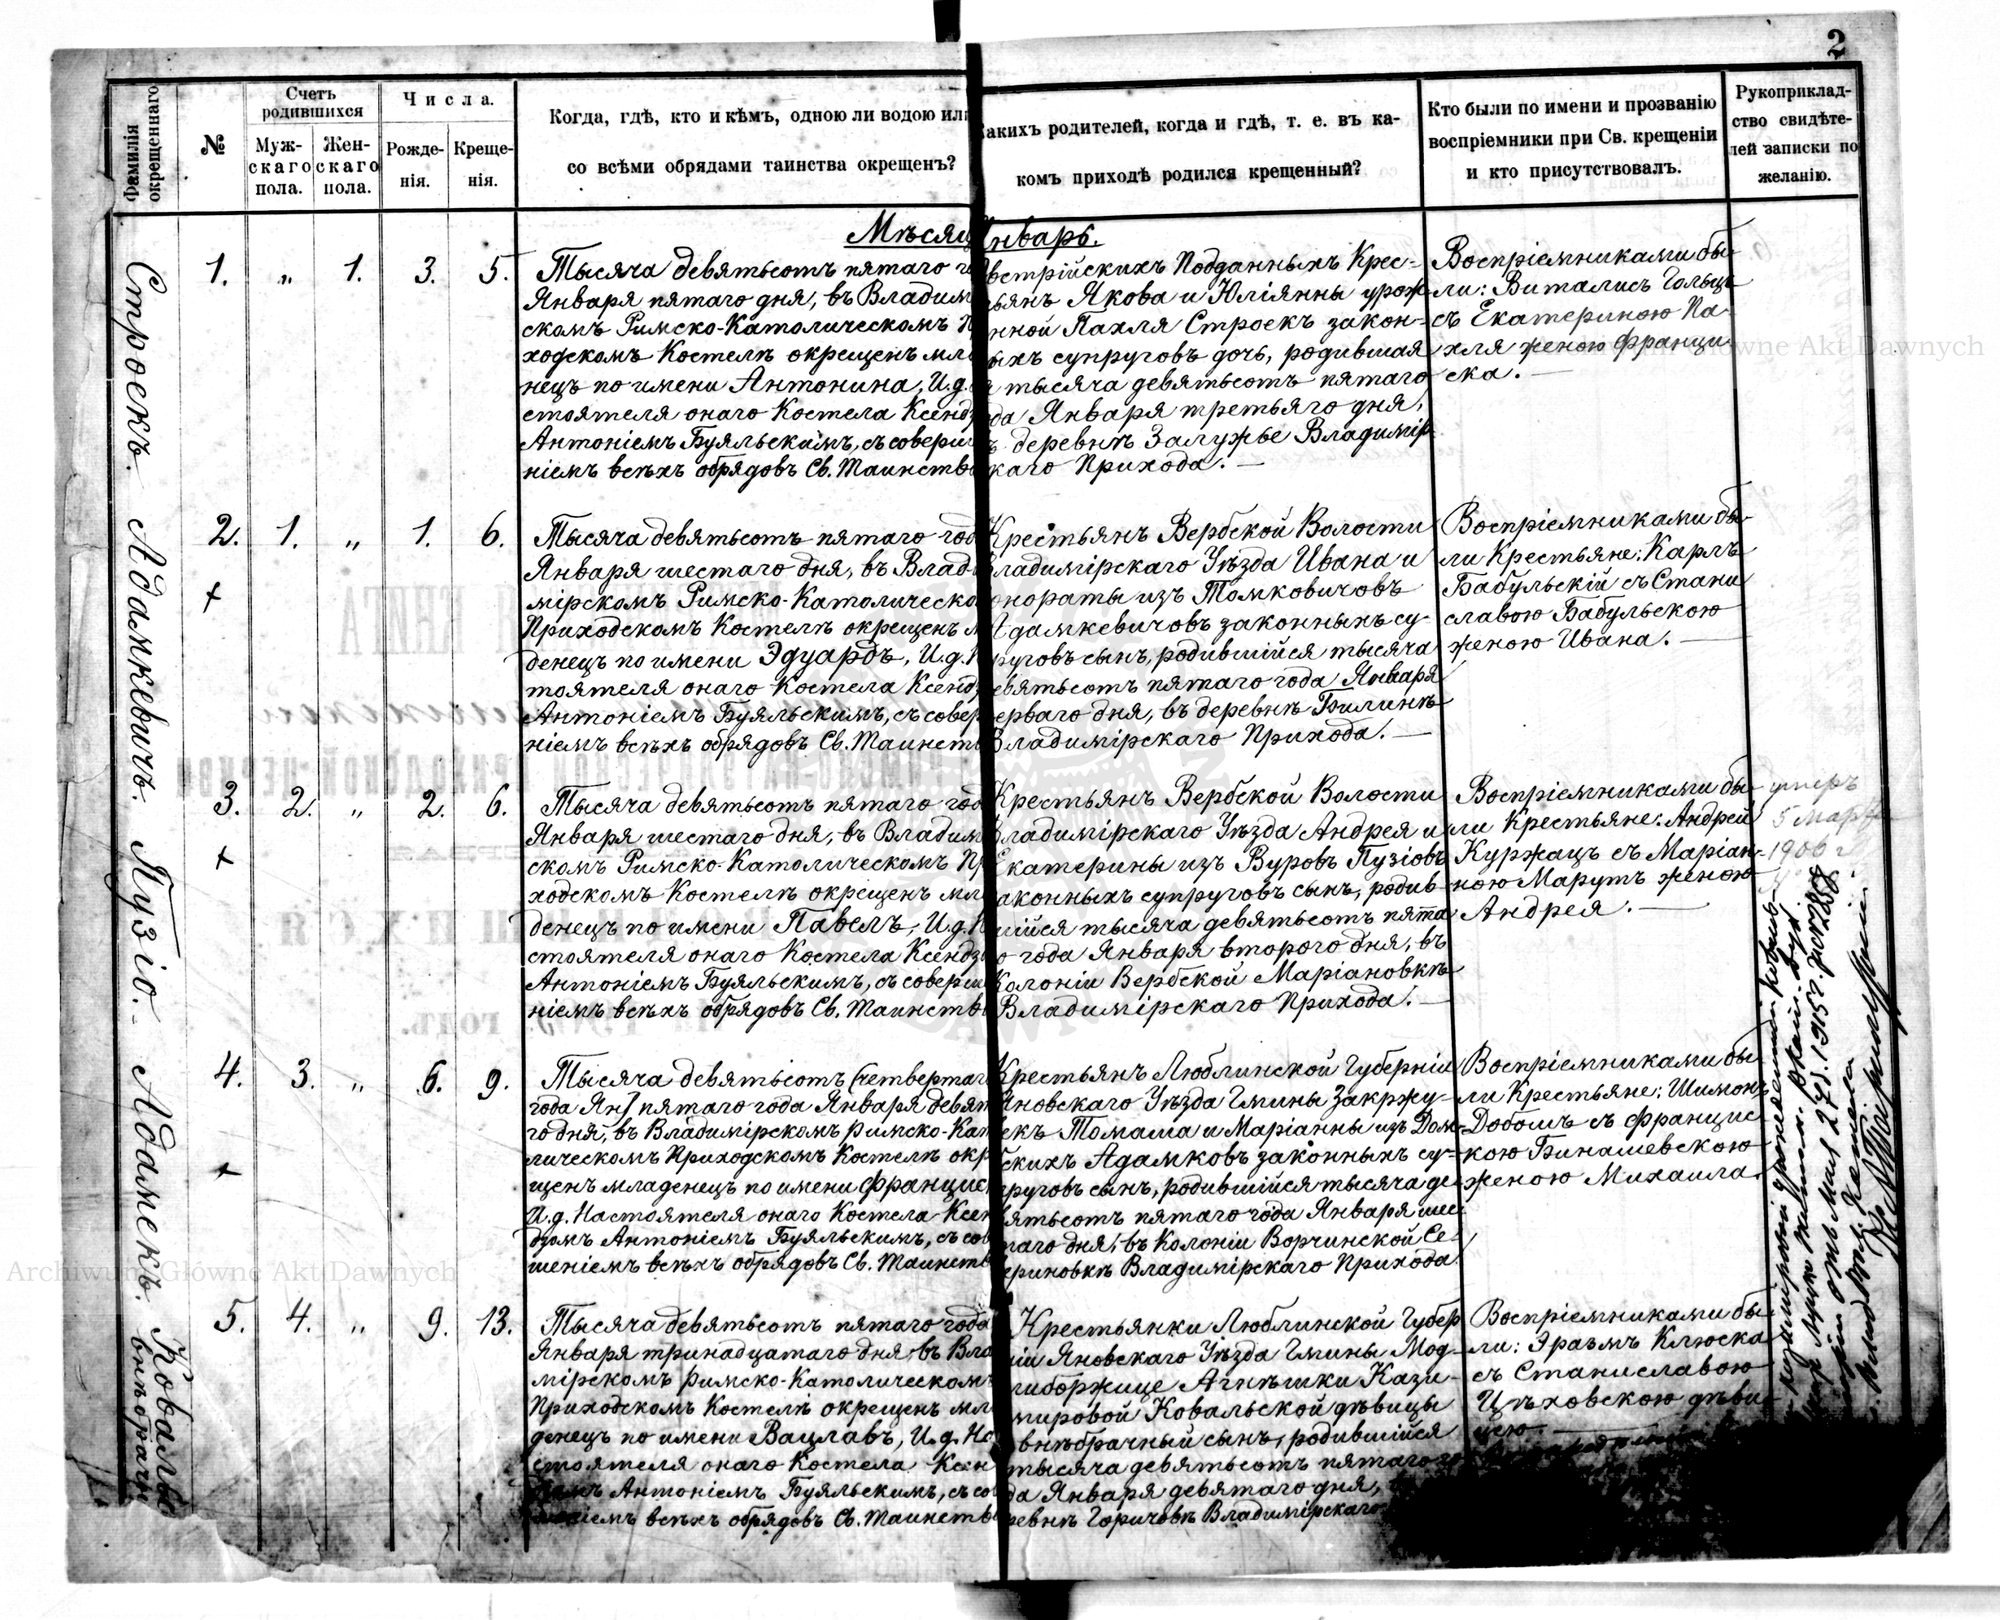 2
Фамилія окрещеннаго
№
Счетъ родившихся
Муж-
скаго
пола.
Жен-
скаго
пола.
Числа.
Рожде-
нія.
Креще-
нія.
Когда, гдѣ, кто и кѣмъ, одною ли водою или
со всѣми обрядами таинства окрещенъ?
Какихъ родителей, когда и гдѣ, т. е. въ ка-
комъ приходѣ родился крещенный?
Кто были по имени и прозванію
воспріемники при Св. крещеніи
и кто присутствовалъ.
Рукоприклад-
ство свидѣте-
лей записки по
желанію.
Мѣсяц Январь.
Строекъ
1. „ 1. 3. 5.
Тысяча девятьсотъ пятаго го
Января пятаго дня, въ Владим
скомъ Римско-Католическомъ П
ходскомъ Костелѣ окрещенъ мла
нецъ по имени Антонина, И.д.
стоятеля онаго Костела Ксенд
Антоніемъ Буяльскимъ, съ соверш
ніемъ всѣхъ обрядовъ Св. Таинств
Австрійскихъ Подданныхъ Крес-
тьянъ Якова и Юліянны урож-
нной Пахля Строекъ закон-
ыхъ супруговъ дочь, родившая
я тысяча девятьсотъ пятаго
ода Января третьяго дня,
ъ деревнѣ Залужье Владимір-
скаго Прихода. —
Воспріемниками бы-
ли: Виталисъ Гольцъ
съ Екатериною Па-
хля женою Франци-
ска. —
Адамкевичъ.
2. 1. „ 1. 6.
+
Тысяча девятьсотъ пятаго год
Января шестаго дня, въ Влади
мірскомъ Римско-Католическо
Приходскомъ Костелѣ окрещенъ м
денецъ по имени Эдуардъ, И.д. Н
тоятеля онаго Костела Ксендз
Антоніемъ Буяльскимъ, съ совер
ніемъ всѣхъ обрядовъ Св. Таинств
Крестьянъ Вербской Волости
Владимірскаго Уѣзда Ивана и
онораты изъ Томковичовъ
Адамкевичовъ законныхъ су-
пруговъ сынъ, родившійся тысяча
девятьсотъ пятаго года Января
перваго дня, въ деревнѣ Билинѣ
Владимірскаго Прихода. —
Воспріемниками бы-
ли Крестьяне: Карлъ
Бабульскій съ Стани
славою Бабульскою
женою Ивана. —
Пузіо.
3. 2. „ 2. 6.
+
Тысяча девятьсотъ пятаго год
Января шестаго дня, въ Владим
скомъ Римско-Католическомъ Пр
ходскомъ Костелѣ окрещенъ мла
денецъ по имени Павелъ, И.д. Н
стоятеля онаго Костела Ксендз
Антоніемъ Буяльскимъ, съ соверш
ніемъ всѣхъ обрядовъ Св. Таинств
Крестьянъ Вербской Волости
Владимірскаго Уѣзда Андрея и
Екатерины изъ Вуровъ Пузіовъ
законныхъ супруговъ сынъ, родив-
шійся тысяча девятьсотъ пята
го года Января второго дня, въ
Колоніи Вербской Маріановкѣ
Владимірскаго Прихода. —
Воспріемниками бы-
ли Крестьяне: Андрей
Куржацъ съ Маріан-
ною Марутъ женою
Андрея. —
умеръ
5 Марта
1906 г
Адамекъ.
4. 3. „ 6. 9.
+
Тысяча девятьсотъ (четвертаг
года Ян) пятаго года Января девят
го дня, въ Владимірскомъ Римско-Кат
лическомъ Приходскомъ Костелѣ окр
щенъ младенецъ по имени Францис
И.д. Настоятеля онаго Костела Ксен
дзомъ Антоніемъ Буяльскимъ, съ сов
шеніемъ всѣхъ обрядовъ Св. Таинств
Крестьянъ Люблинской Губерніи
Яновскаго Уѣзда Гмины Закржу-
екъ Томаша и Маріанны изъ Дом-
бскихъ Адамковъ законныхъ су-
пруговъ сынъ, родившійся тысяча де
вятьсотъ пятаго года Января шес
таго дня, въ Колоніи Ворчинской Се-
вериновкѣ Владимірскаго Прихода
Воспріемниками бы-
ли Крестьяне: Шимонъ
Добошъ съ Францис
кою Бинашевскою
женою Михаила.
Ковальс
внѣбрачн
5. 4. „ 9. 13.
Тысяча девятьсотъ пятаго года
Января тринадцатаго дня, въ Вла
мірскомъ Римско-Католическомъ
Приходскомъ Костелѣ окрещенъ мл
денецъ по имени Вацлавъ, И.д. На
стоятеля онаго Костела Ксен
Антоніемъ Буяльскимъ, съ со
ніемъ всѣхъ обрядовъ Св. Таинств
Крестьянки Люблинской Губер
ніи Яновскаго Уѣзда Гмины Мод-
либоржице Агнѣшки Кази-
мировой Ковальской дѣвицы
внѣбрачный сынъ, родившійся
тысяча девятьсотъ пятаго
да Января девятаго дня,
ревнѣ Горичовѣ Владимірскаго
Воспріемниками бы-
ли: Эразмъ Клюска
съ Станиславою
Цѣховскою дѣви-
цею. —
отъ Мая 27 д. 1915 г. за № 288
Archiwum Główne Akt Dawnych
Główne Akt Dawnych